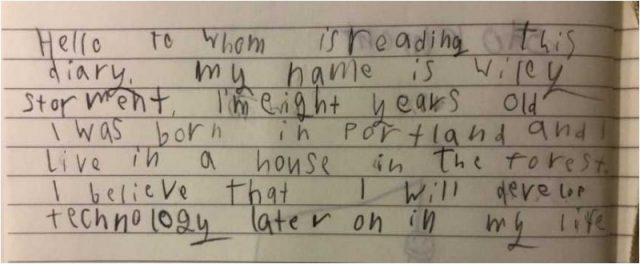 Hello to whom is reading this
diary, my name is wiley
storment, I'm eight years old
I was born in portland and I
live in a house in the forest.
I believe that I will develop
technology later on in my life